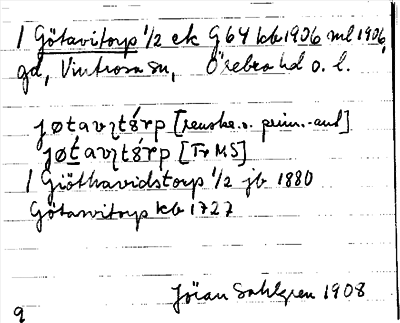 1 Götavitorp 1/2 ek G 64 kb 1906 ml 1906,
gd, Vintrosa sn, Örebro hd ö. l.
jøtavɩtǿrp [svenske. o. prim.-and]
jøt́avɩtǿrp [Tr MS]
1 Giöthavidstorp 1/2 jb 1880
Götawitorp kb 1727
Jöran Sahlgren 1908